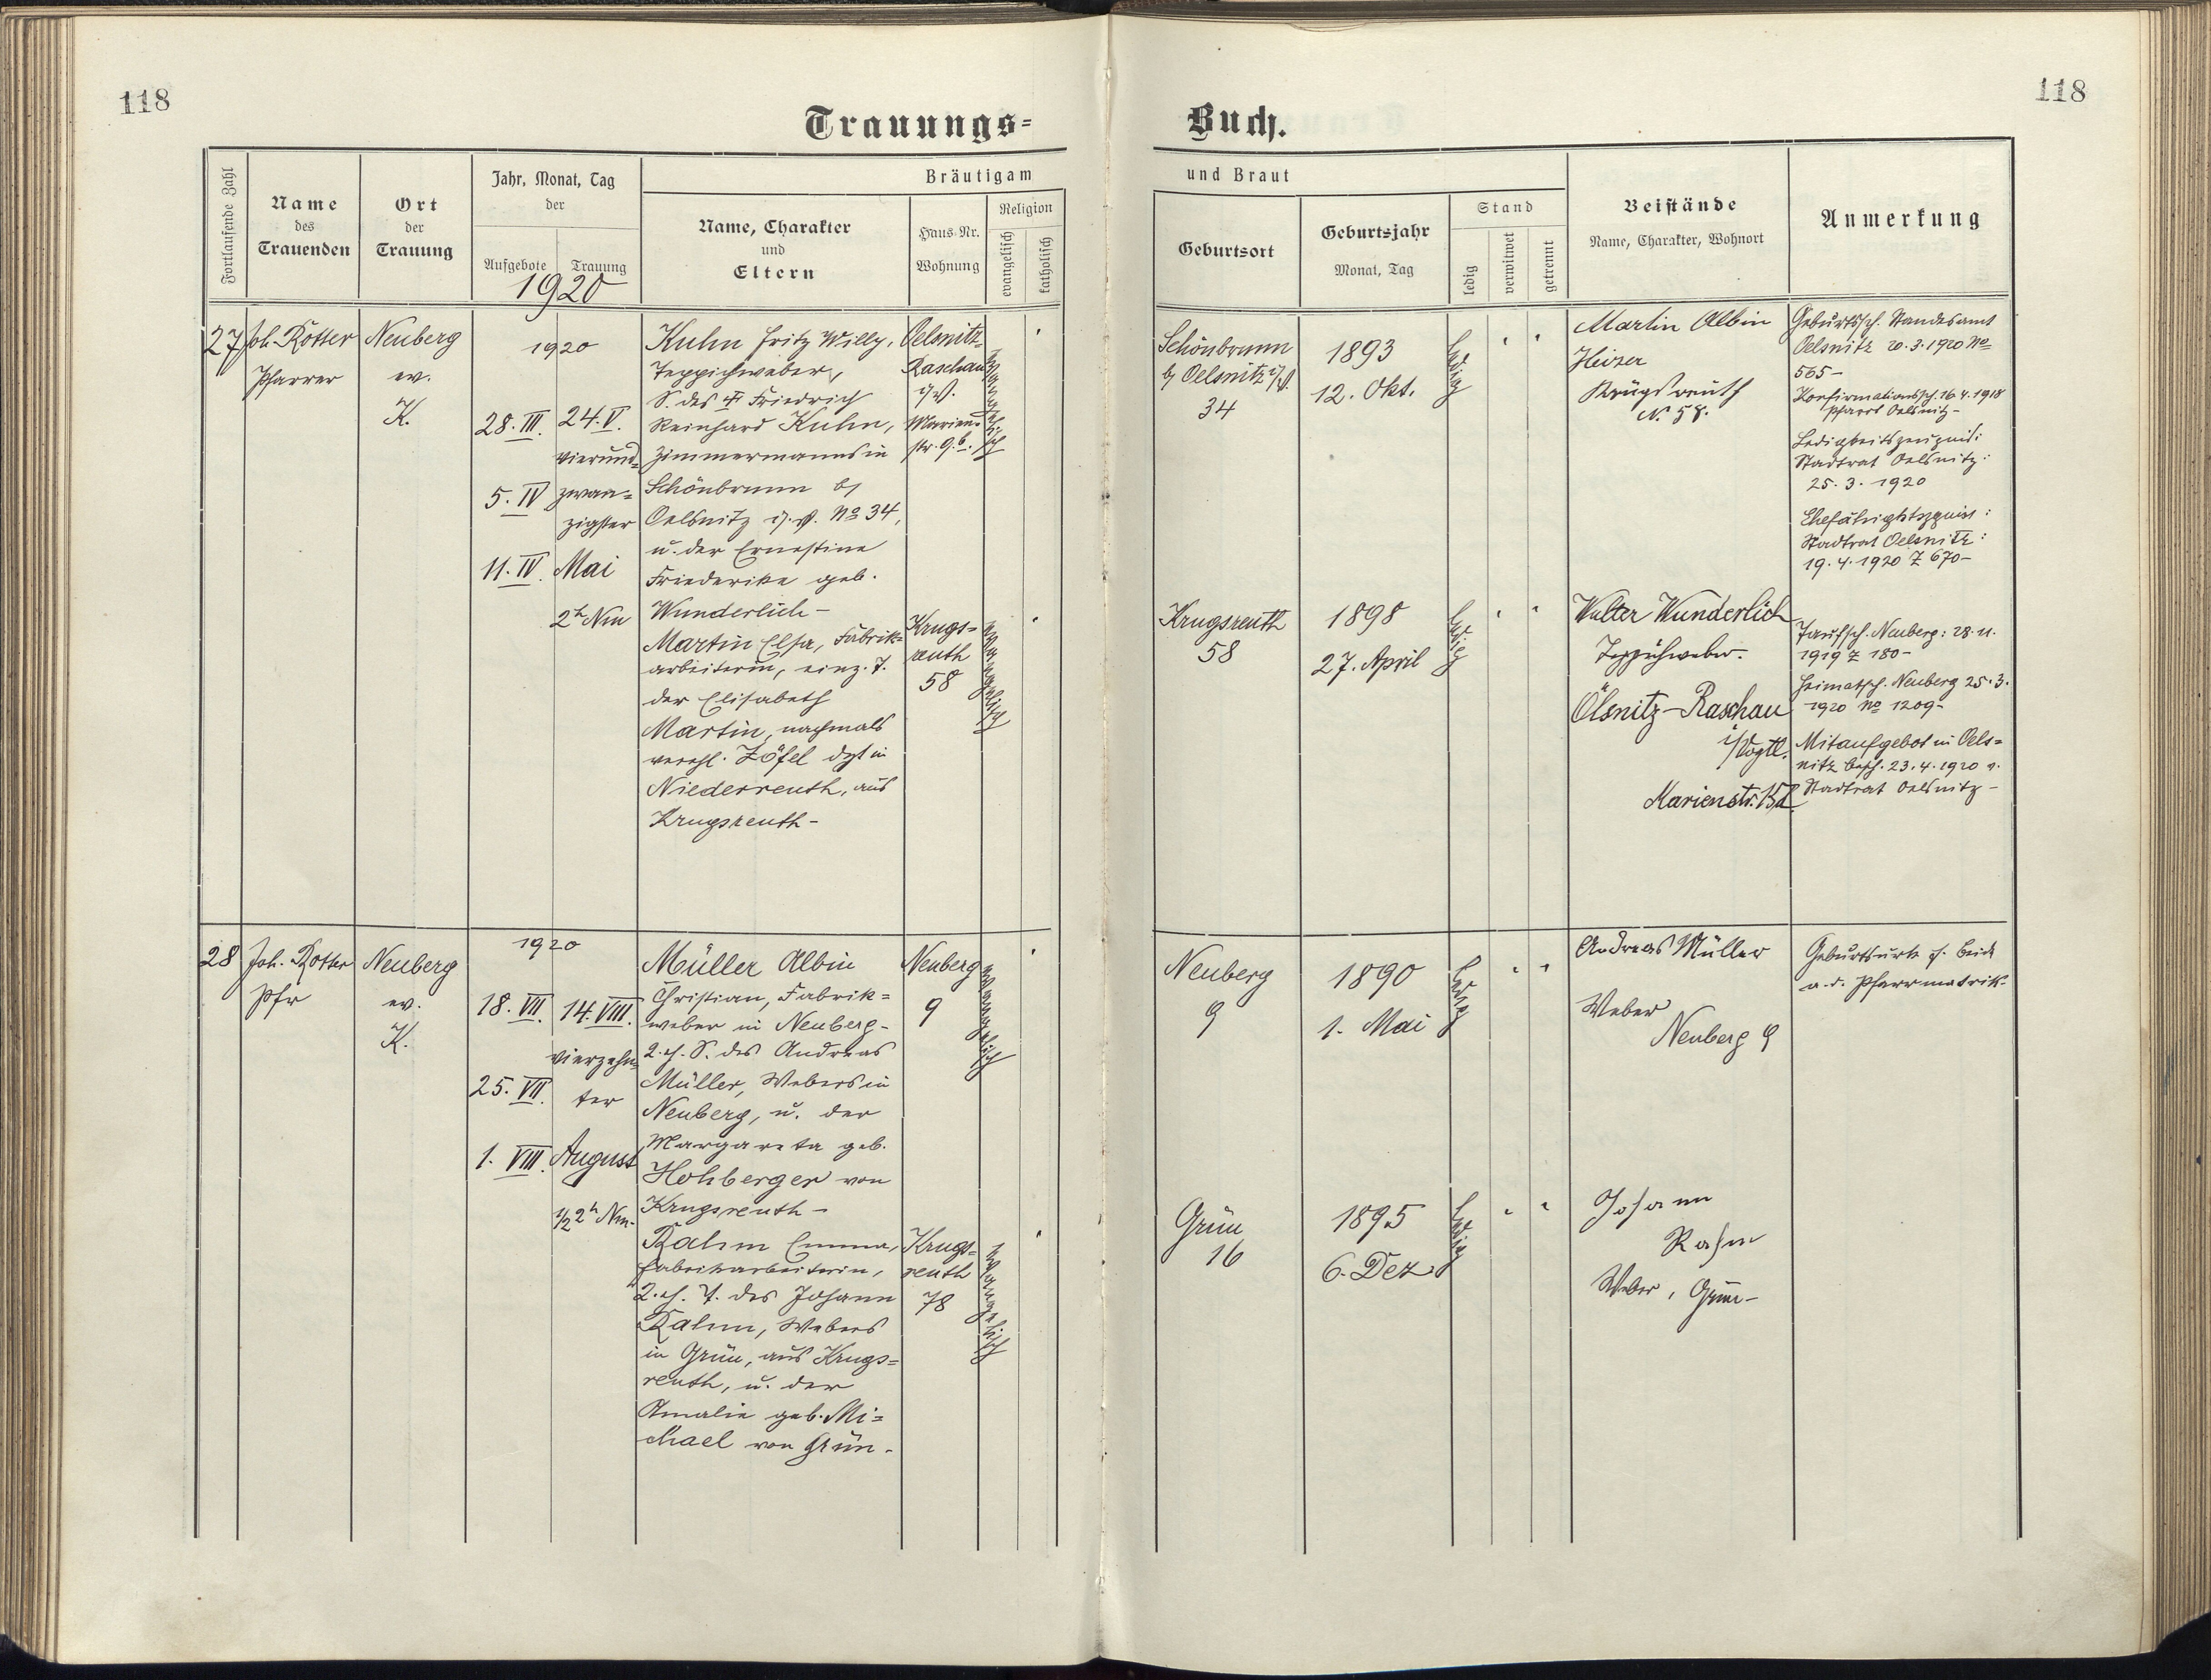 118
118
Trauungs=
Buch.
Fortlaufende Zahl
Name
des
Trauenden
Ort
der
Trauung
Jahr, Monat, Tag
der
Aufgebote
Trauung
1920
Bräutigam
Name, Charakter
und
Eltern
Haus-Nr.
Wohnung
Religion
evangelisch
katholisch
und Braut
Geburtsort
Geburtsjahr
Monat, Tag
Stand
ledig
verwitwet
getrennt
Beistände
Name, Charakter, Wohnort
Anmerkung
27
Joh. Rotter
Pfarrer
Neuberg
ev.
K.
1920
28. III.
5. IV
11. IV.
24. V.
vierund=
zwan=
zigster
Mai
2h Nm
Kuhn Fritz Willy,
Teppichweber,
S. des Friedrich
Reinhard Kuhn,
Zimmermanns in
Schönbrunn b/
Oelsnitz i. V. No 34,
u. der Ernestine
Friederike geb.
Wunderlich -
Martin Elsa, Fabrik=
arbeiterin, einz. T.
der Elisabeth
Martin, nachmals
verehl. Zöfel dzt in
Niederreuth, aus
Krugsreuth -
Oelsnitz-
Raschau
i/V.
Marien=
str. 9.b.
evangelisch
Krugs=
reuth
58
evangelisch
Schönbrunn
b/ Oelsnitz i/V.
34
1893
12. Okt.
ledig
Martin Albin
Heizer
Krugsreuth
N. 58.
Geburtssch. Standesamt
Oelsnitz 20.3.1920 No
565 -
Konfirmationssch. 16.4.1918
Pfarrt Oelsnitz -
Ledigkeitszeugnis:
Stadtrat Oelsnitz:
25. 3. 1920
Stadtrat Oelsnitz:
19. 4. 1920 Z 670 -
Krugsreuth
58
1898
27. April
ledig
Walter Wunderlich
Teppichweber.
Ölsnitz-Raschau
i/Vogtl.
Marienstr.
Taufsch. Neuberg: 28. 11.
1919 Z 180 -
Heimatsch. Neuberg 25. 3.
1920 No 1209 -
Mitaufgebot in Oels=
nitz besch. 23. 4. 1920 v.
Stadtrat Oelsnitz -
28
Joh. Rotter
Pfr
Neuberg
ev.
K.
1920
18. VII.
25. VII.
1. VIII.
14. VIII.
vierzehn=
ter
August
1/2 2h Nm.
Müller Albin
Christian, Fabrik=
weber in Neuberg -
2. eh. S. des Andreas
Müller, Webers in
Neuberg, u. der
Margareta geb.
Hohberger von
Krugsreuth -
Rahm Emma,
Fabrikarbeiterin,
2. eh. T. des Johann
Rahm, Webers
in Grün, aus Krugs=
reuth, u. der
Amalie geb. Mi=
chael von Grün.
Neuberg
9
evangelisch
Krugs=
reuth
78
evangelisch
Neuberg
9
1890
1. Mai
ledig
Andreas Müller
Weber
Neuberg 9
Geburtsurk f. beide
a. d. Pfarrmatrik.
Grün
16
1895
6. Dez
ledig
Johann
Rahm
Weber, Grün -